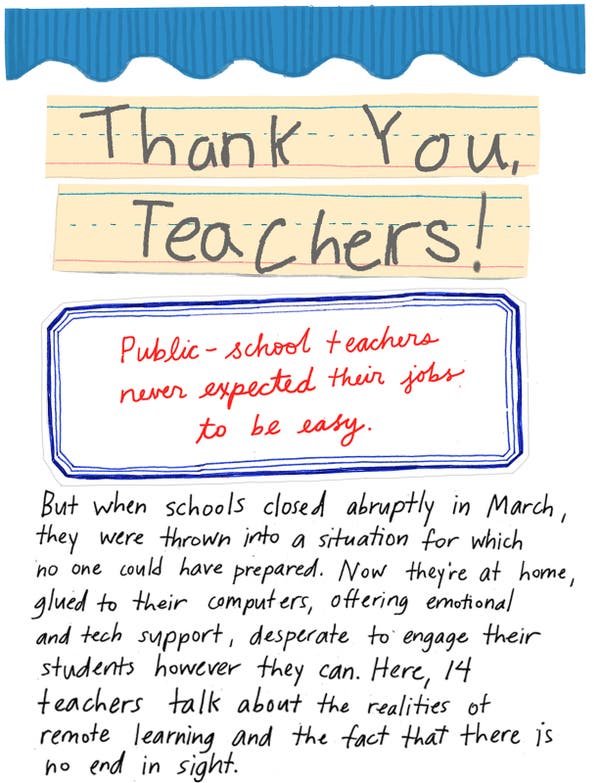 Thank You,
Teachers!
Public-school teachers
never expected their jobs
to be easy.
But when schools closed abruptly in March,
they were thrown into a situation for which
no one could have prepared. Now they're at home,
glued to their computers, offering emotional
and tech support, desperate to engage their
students however they can. Here, 14
teachers talk about the realities of
remote learning and the fact that there is
no end in sight.